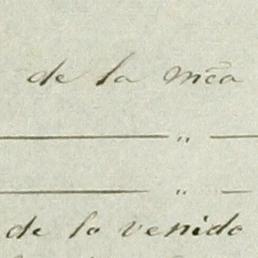 de la mca
"
"
de la venida